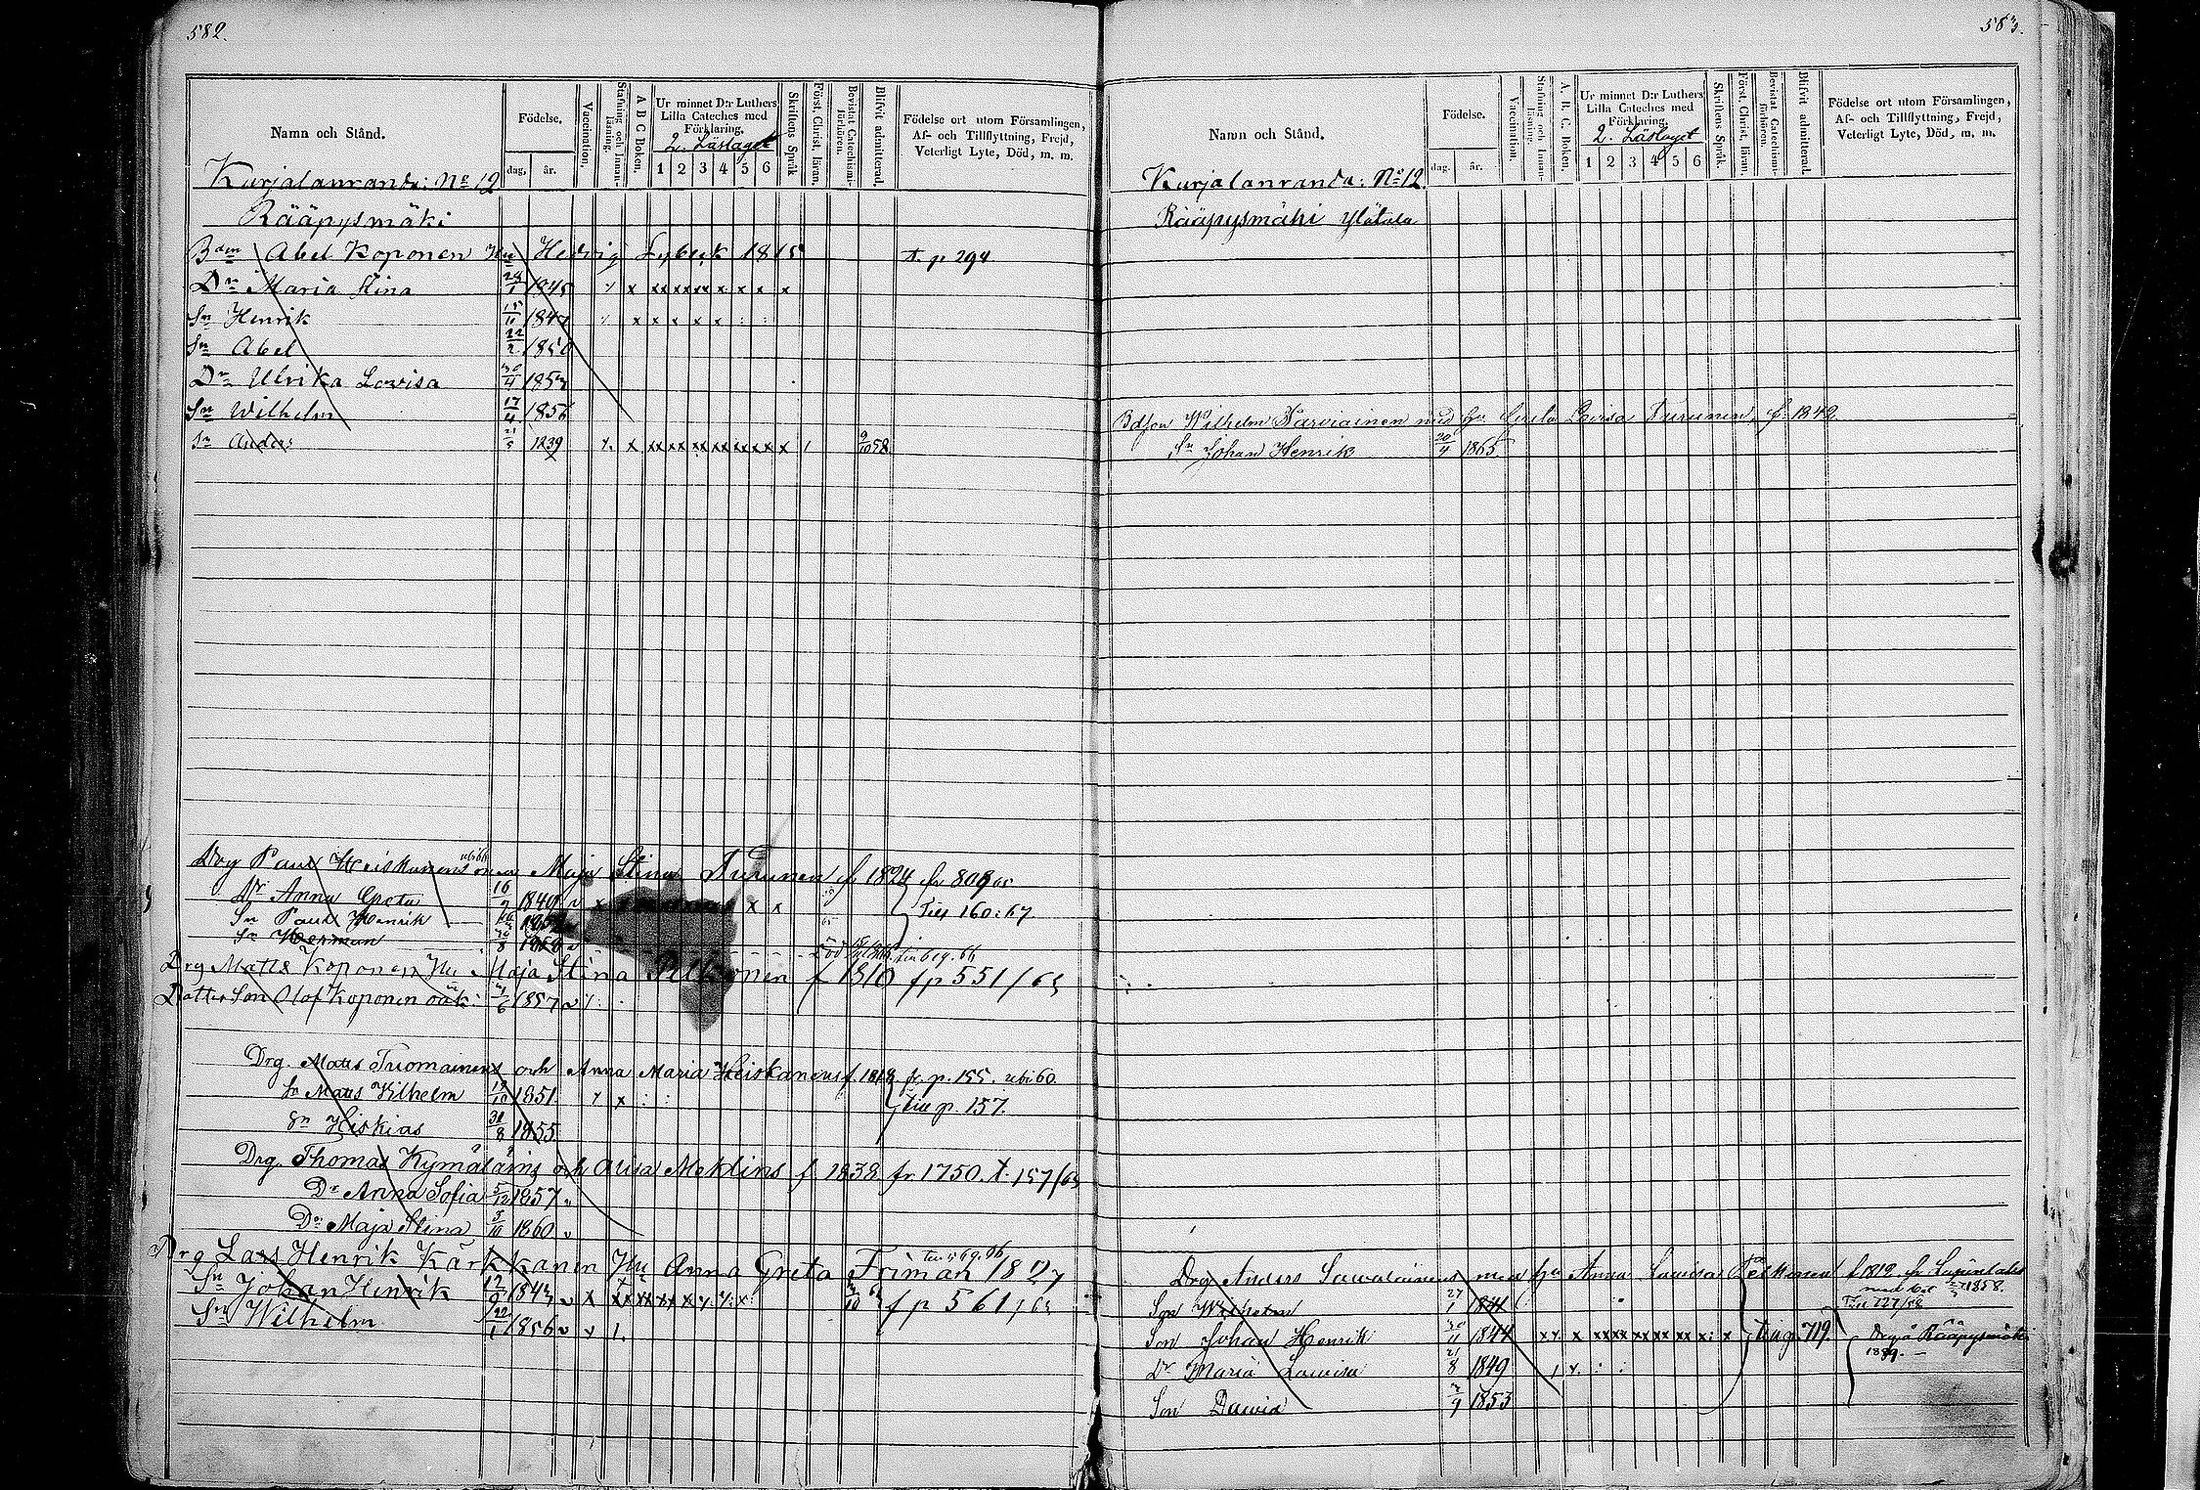 582.
Namn och Stånd.
Födelse.
dag. år.
Vaccination.
Stafning och Innanläsning.
A B C Boken.
Ur minnet D:r Luthers Lilla Cateches med Förklaring.
2. Läslaget
1 2 3 4 5 6
Skriftens Språk
Först. Christ. läran.
Bevistat Catechismiförhören.
Blifvit admitterad.
Födelse ort utom Församlingen, Af- och Tillflyttning, Frejd, Veterligt Lyte, Död, m. m.
Kurjalanranda: No 12
Rääpysmäki
Bden Abel Koponen Hu Hedvig Lybeck 1815 t. p 294
Dr Maria Stina 1845
Sn Henrik 1847
Sn Abel 22/2 1850
Dr Ulrika Lovisa 1853
Sn Wilhelm 17/4 1856
Sn Anders 1839 9/10 58
Drg Paul Heiskanens Maja Stina Turunen f. 1824 fr 809
Dr Anna Greta 1840 Till 160:67.
Sn Paul Henrik
Sn Herman
Drg Matts Koponen Hu Maja Stina Pelkonen f 1810 f p 551/63
Dotter Son Olof Koponen oäk: 1857
Drg. Matts Tuomainens och Anna Maria Heiskanens f. 1818 fr. p. 155. ubi 60.
Sn Matts Vilhelm 1851 till p. 157.
Sn Hiskias 31/8 1855
Drg. Thomas Kymäläinz och Lovisa Meklins f. 1838 fr. 1750. t. 157/63
Dr Anna Sofia 5/12 1857
Dr Maja Stina 1860
Drg Lars Henrik Kärkkänen Hu Anna Greta Friman 1827
Sn Johan Henrik 1843 f p 561/63
Sn Wilhelm 1856
583.
Namn och Stånd.
Födelse.
dag. år.
Vaccination.
Stafning och Innanläsning.
A. B. C. Boken.
Ur minnet D:r Luthers Lilla Cateches med Förklaring.
2. Läslaget
1 2 3 4 5 6
Skriftens Språk.
Först. Christ. läran.
Bevistat Catechismiförhören.
Blifvit admitterad.
Födelse ort utom Församlingen, Af- och Tillflyttning, Frejd, Veterligt Lyte, Död, m. m.
Kurjalanranda: No 12.
Rääpysmäki Ylätalo
Bdson Wilhelm Karviainen med hu Greta Lovisa Turunen, f. 1842.
Sn Johan Henrik 20/4 1865
Drg Anders Sawolainens med hu Anna Lowisa Pelkonen f 1812
Son Wilhelm 27/1 1841
Son Johan Henrik 30/11 1844 t. pag. 719. Drg å Rääpysmäki
Dr Maria Lowisa 21/8 1849
Son Dawid 1853